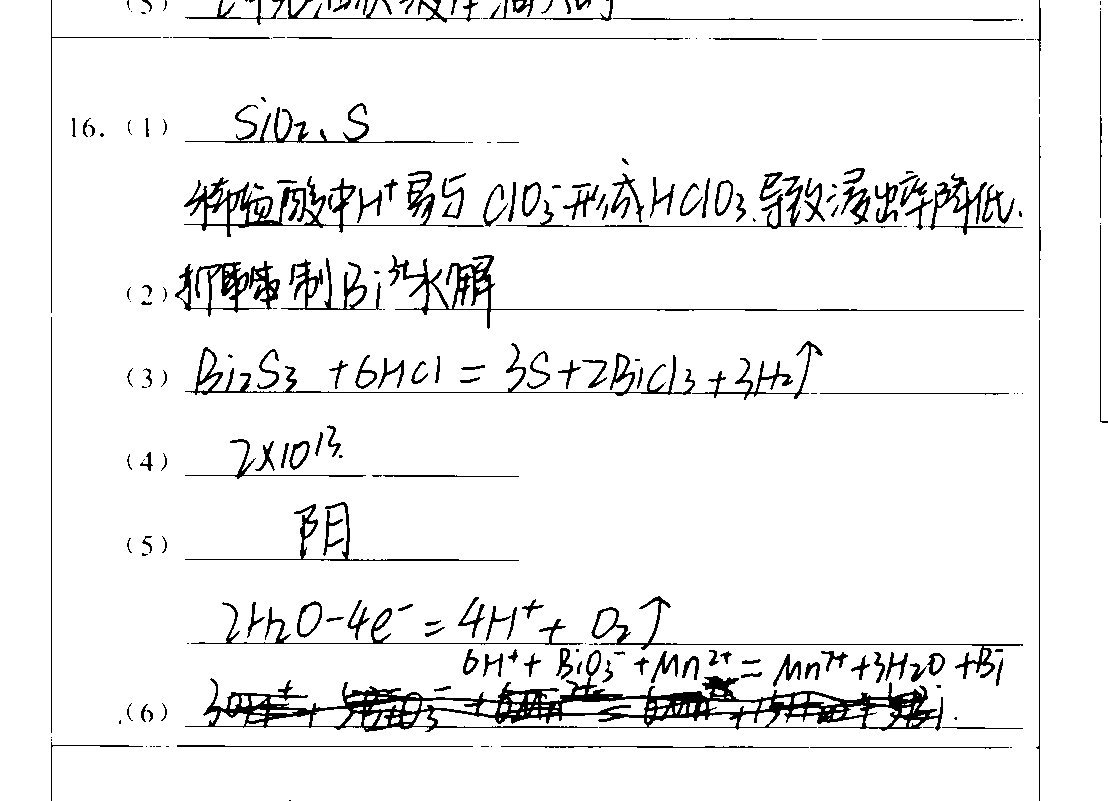 16. (1) SiO₂、S
稀盐酸中H⁺易与ClO₃⁻形成HClO₃导致浸出率降低.
(2) 抑制Bi³⁺水解
(3) Bi₂S₃ + 6HCl = 3S + 2BiCl₃ + 3H₂↑
(4) 2×10¹³.
(5) 阴
2H₂O - 4e⁻ = 4H⁺ + O₂↑
6H⁺ + BiO₃⁻ + Mn²⁺ = Mn⁷⁺ + 3H₂O + Bi
(6)